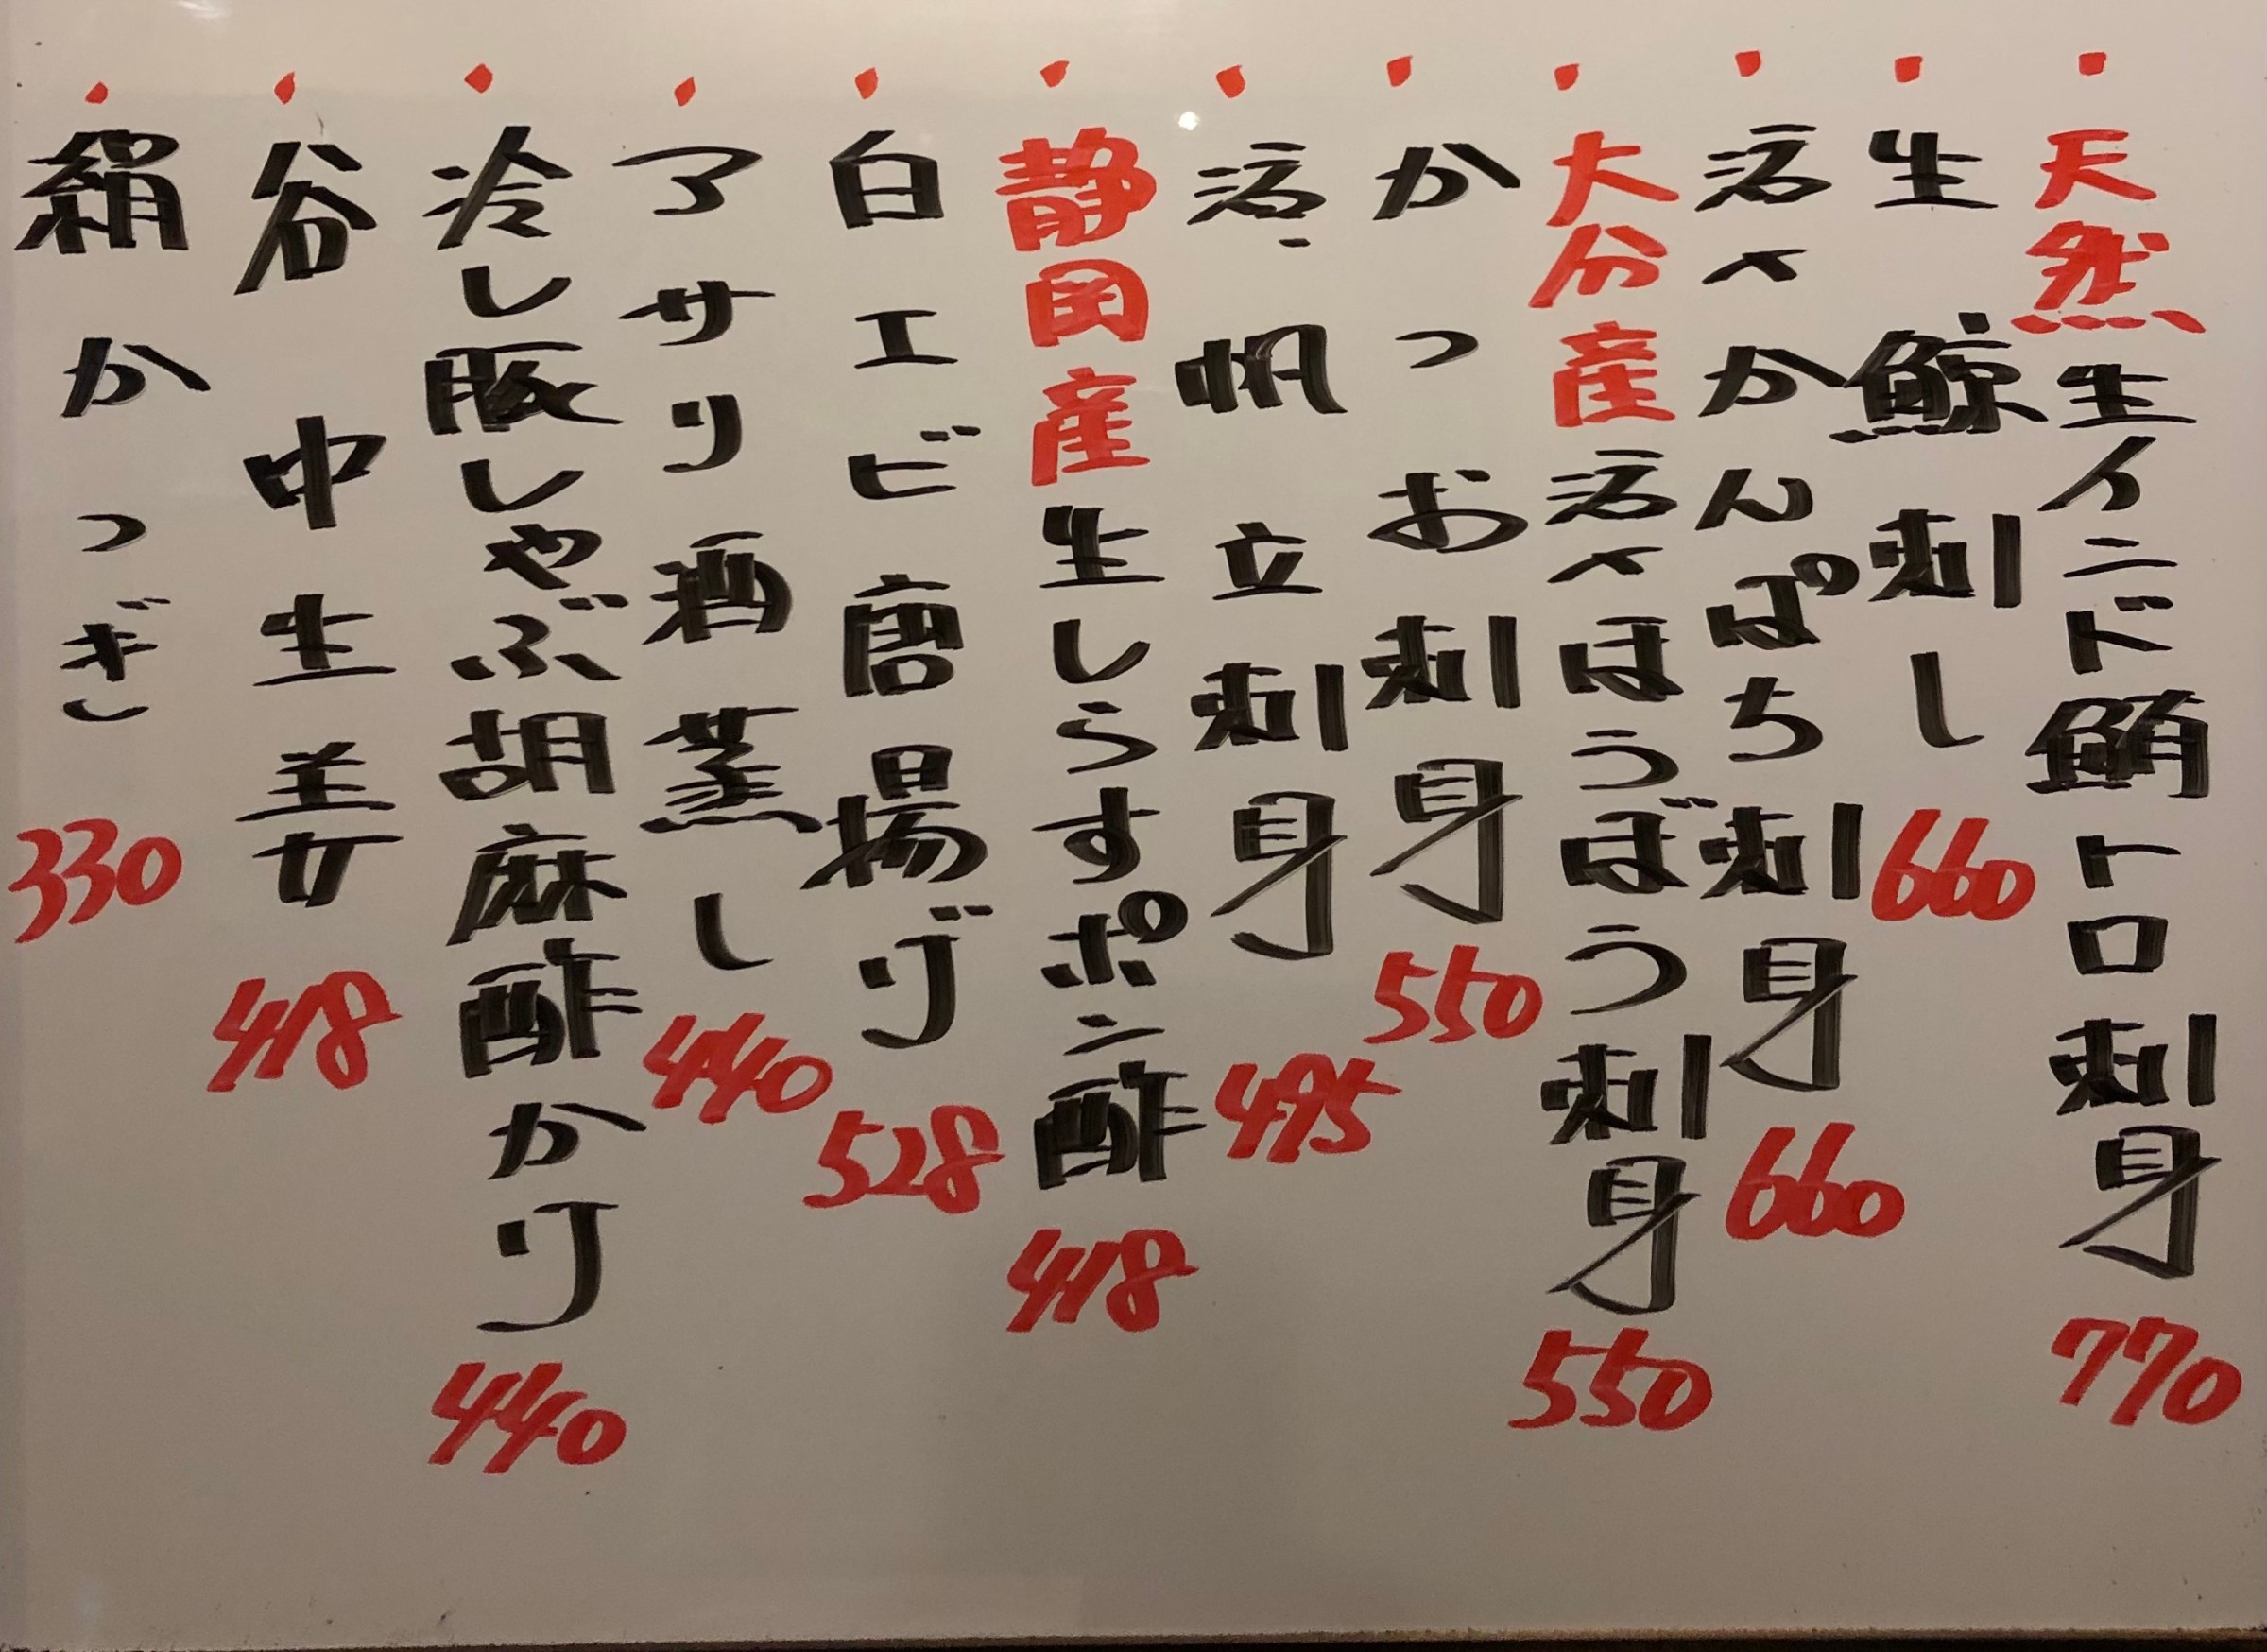 天然生インド鮪トロ刺身 770
生鯨刺し 660
活〆かんぱち刺身 660
大分産活〆ほうぼう刺身 550
かつお刺身 550
活帆立刺身 495
静岡産生しらすポン酢 418
白エビ唐揚げ 528
アサリ酒蒸し 440
冷し豚しゃぶ胡麻酢かけ 440
谷中生姜 418
絹かつぎ 330